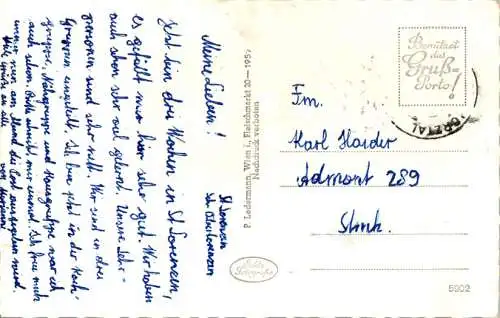 St. Lorenzen
Meine Lieben!
Jetzt bin drei Wochen in St. Lorenzen,
es gefällt mir hier sehr gut. Wir haben
auch schon sehr viel gelernt. Unsere Lehr-
personen sind sehr nett. Wir sind in drei
Gruppen eingeteilt. Ich bin jetzt in der Koch-
gruppe, Nähgruppe und Hausgruppe war ich
auch schon. Bitte schreibt mir einmal. Ich freue mich
immer wenn am Abend die Post ausgegeben wird.
Viele Grüße an alle
von
P. Ledermann, Wien I., Fleischmarkt 20—195
Nachdruck verboten
Echte
Fotografie
Benützet
das
Gruß-
Porto!
Fm.
Karl Haider
Admont 289
Stmk.
5902